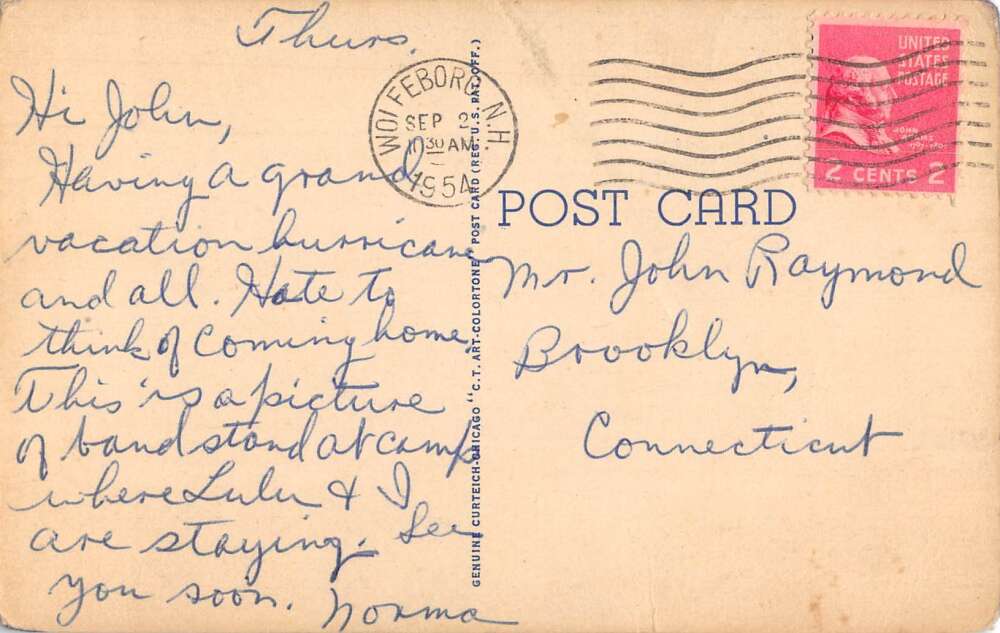 Thurs.
Hi John,
Having a grand
vacation hurricane
and all. Hate to
think of coming home.
This is a picture
of bandstand at camp
where Lulu & I
are staying. See
you soon. Norma
GENUINE CURTEICH-CHICAGO "C.T. ART-COLORTONE" POST CARD (REG. U.S. PAT. OFF.)
WOLFEBORO N.H.
SEP 2
30 AM
1954
UNITED
STATES
POSTAGE
JOHN
ADAMS
2 CENTS 2
POST CARD
Mr. John Raymond
Brooklyn,
Connecticut